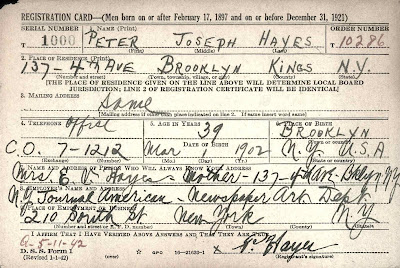 REGISTRATION CARD—(Men born on or after February 17, 1897 and on or before December 31, 1921)
SERIAL NUMBER 1. NAME (Print) ORDER NUMBER
T 1000 PETER JOSEPH HAYES T10286
(First) (Middle) (Last)
2. PLACE OF RESIDENCE (Print)
137-4TH AVE BROOKLYN KINGS N.Y.
(Number and street) (Town, township, village, or city) (County) (State)
[THE PLACE OF RESIDENCE GIVEN ON THE LINE ABOVE WILL DETERMINE LOCAL BOARD
JURISDICTION; LINE 2 OF REGISTRATION CERTIFICATE WILL BE IDENTICAL]
3. MAILING ADDRESS
Same
[Mailing address if other than place indicated on line 2. If same insert word same]
4. TELEPHONE 5. AGE IN YEARS 6. PLACE OF BIRTH
Office 39 BROOKLYN
DATE OF BIRTH (Town or county)
C.O. 7-1212 Mar 1 1902 N.Y. U.S.A
(Exchange) (Number) (Mo.) (Day) (Yr.) (State or country)
7. NAME AND ADDRESS OF PERSON WHO WILL ALWAYS KNOW YOUR ADDRESS
Mrs. E. V. Hayes - Mother - 137-4th Ave - Bklyn NY
8. EMPLOYER'S NAME AND ADDRESS
N.Y. Journal American - Newspaper Art Dept.
9. PLACE OF EMPLOYMENT OR BUSINESS
210 South St New York N.Y.
(Number and street or R. F. D. number) (Town) (County) (State)
I AFFIRM THAT I HAVE VERIFIED ABOVE ANSWERS AND THAT THEY ARE TRUE.
a-5-11-42
D. S. S. Form 1 GPO 16—21630-1 x Hayes
(Revised 1-1-42) (Registrant's signature)